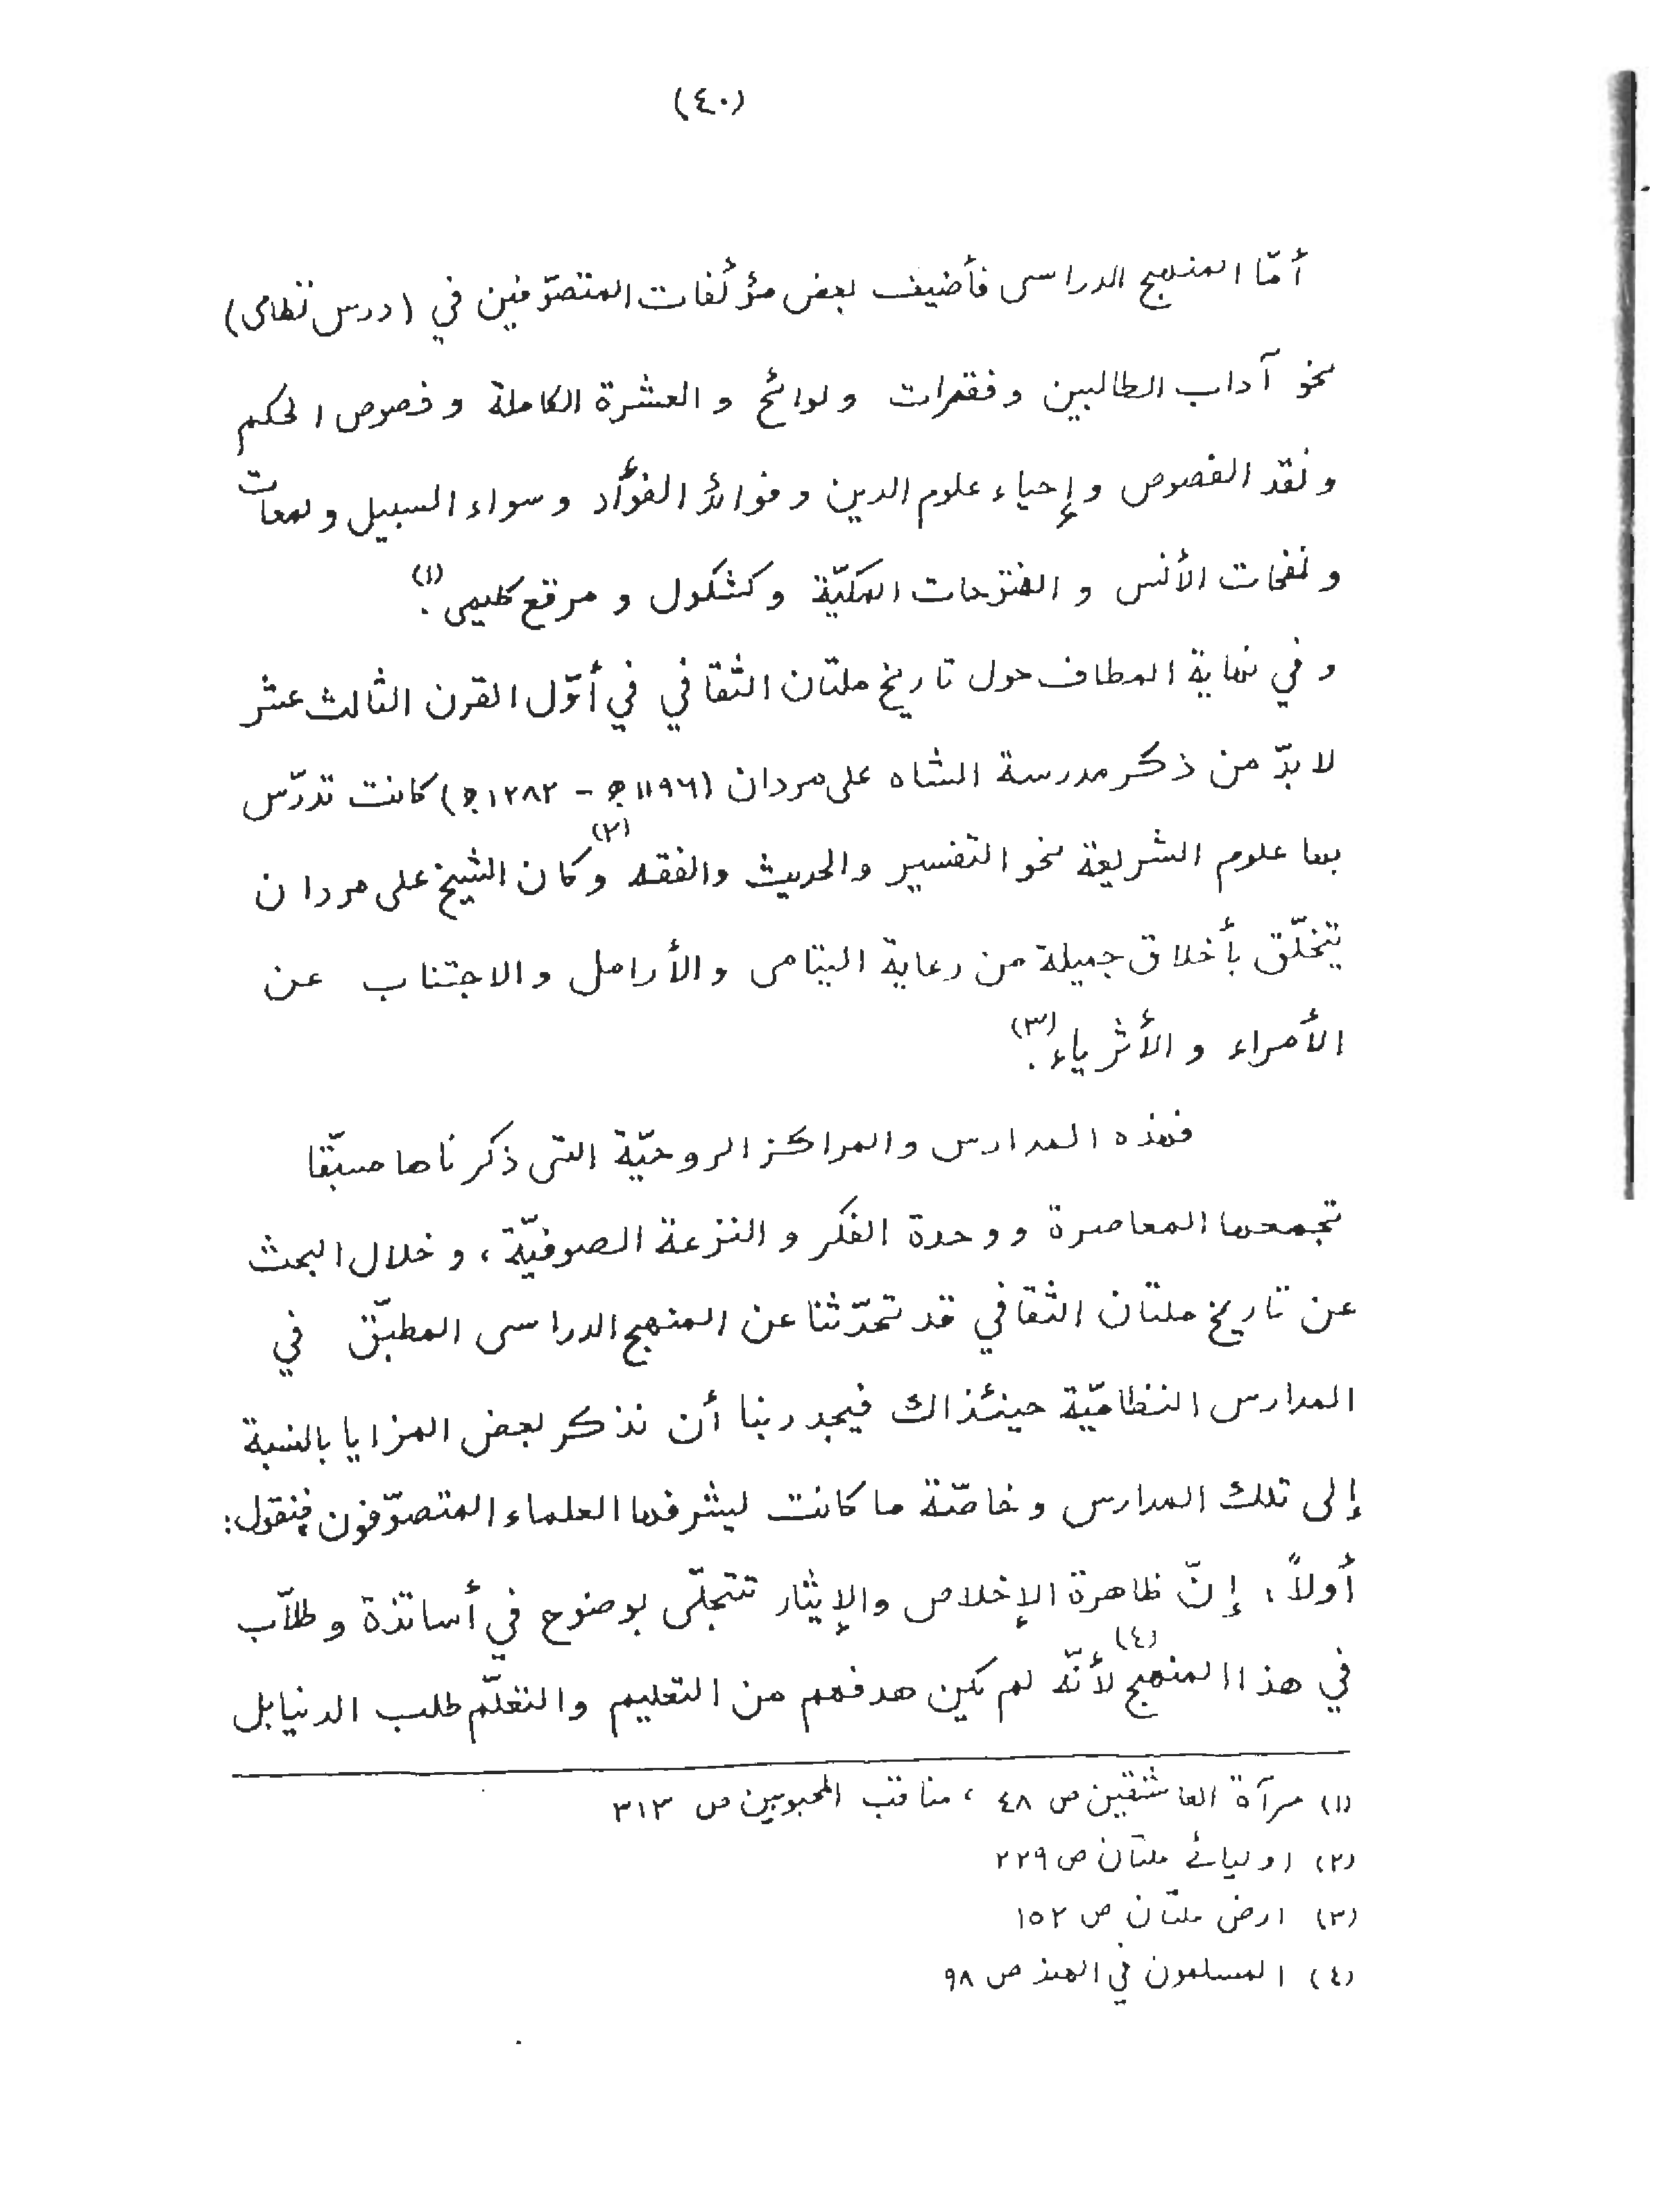 (٤٠)
أمّا المنهج الدراسى فأضيف بعض مؤلفات المتصوّفين في (درس نظامى)
نحو آداب الطالبين وفقرات ولوائح والعشرة الكاملة وفصوص الحكم
ونقد الفصوص وإحياء علوم الدين وفوائد الفؤاد وسواء السبيل ولمعات
ونفحات الأنس والفتوحات المكيّة وكشكول ومرقع كليمى (١).
وفي نهاية المطاف حول تاريخ ملتان الثقافي في أوّل القرن الثالث عشر
لا بدّ من ذكر مدرسة الشاه على مردان (١١٩٦ھ - ١٢٨٢ھ) كانت تدرّس
بها علوم الشريعة نحو التفسير والحديث والفقه (٢) وكان الشيخ على مردان
يتخلّق بأخلاق جميلة من رعاية اليتامى والأرامل والاجتناب عن
الأمراء والأثرياء (٣).
فهذه المدارس والمراكز الروحيّة التى ذكرناها مسبّقا
تجمعها المعاصرة ووحدة الفكر والنزعة الصوفيّة، وخلال البحث
عن تاريخ ملتان الثقافي قد تحدّثنا عن المنهج الدراسى المطبّق في
المدارس النظاميّة حينئذاك فيجدر بنا أن نذكر بعض المزايا بالنسبة
إلى تلك المدارس وخاصّة ما كانت يشرفها العلماء المتصوّفون فنقول:
أولاً، إنّ ظاهرة الإخلاص والإيثار تتجلّى بوضوح في أساتذة وطلاّب
في هذا المنهج (٤) لأنّه لم يكن هدفهم من التعليم والتعلّم طلب الدنيا بل
(١) مرآة العاشقين ص ٤٨، مناقب المحبوبين ص ٣١٣
(٢) اوليائے ملتان ص ٢٢٩
(٣) ارض ملتان ص ١٥٢
(٤) المسلمون في الهند ص ٩٨